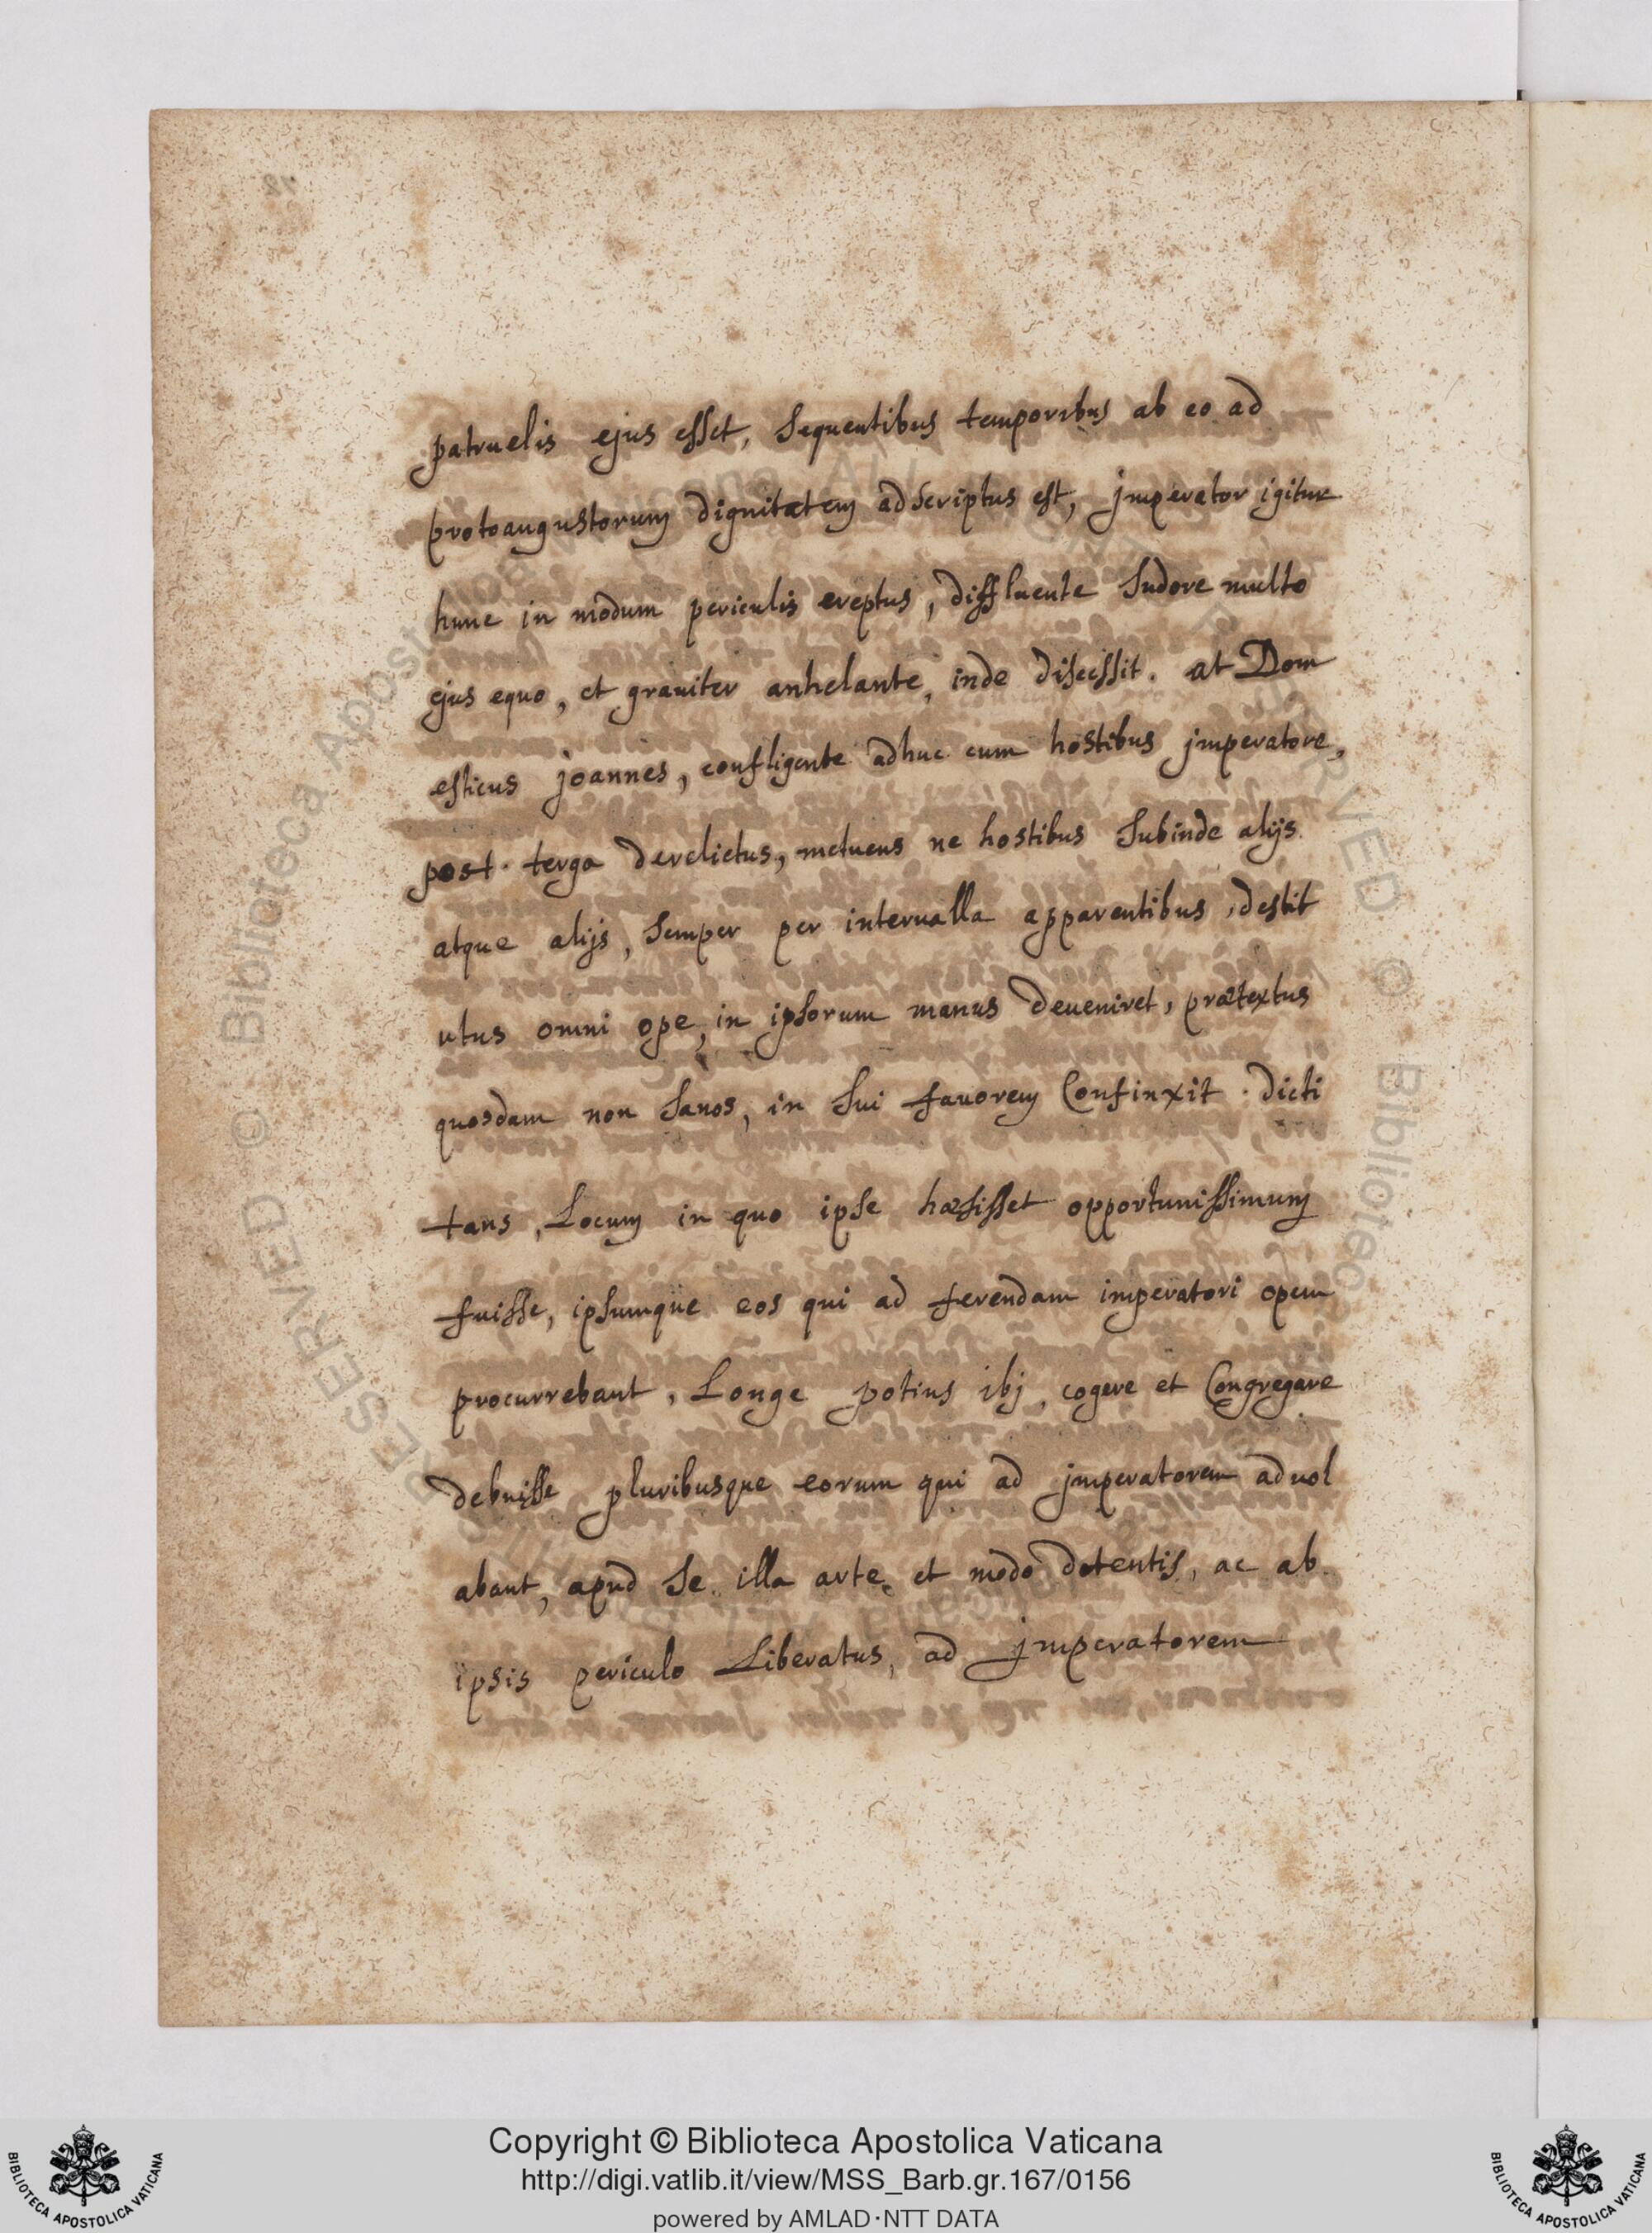 patruelis ejus esset, sequentibus temporibus ab eo ad
protoaugustorum dignitatem adscriptus est, jmperator igitur
hunc in modum periculis ereptus, diffluente sudore multo
ejus equo, et grauiter anhelante, inde discessit. at Dom
esticus joannes, confligente adhuc cum hostibus jmperatore,
post terga derelictus, metuens ne hostibus subinde alijs
atque alijs, semper per interualla apparentibus, destit
utus omni ope, in ipsorum manus deueniret, prætextus
quosdam non sanos, in sui fauorem Confinxit. dicti
tans, Locum in quo ipse hæsisset opportunissimum
fuisse, ipsumque eos qui ad ferendam imperatori opem
procurrebant, Longe potius ibj, cogere et Congregare
debuisse pluribusque eorum qui ad jmperatorem aduol
abant, apud se illa arte, et modo detentis, ac ab
ipsis periculo Liberatus, ad jmperatorem
Copyright © Biblioteca Apostolica Vaticana
http://digi.vatlib.it/view/MSS_Barb.gr.167/0156
powered by AMLAD·NTT DATA
BIBLIOTECA APOSTOLICA VATICANA
BIBLIOTECA APOSTOLICA VATICANA